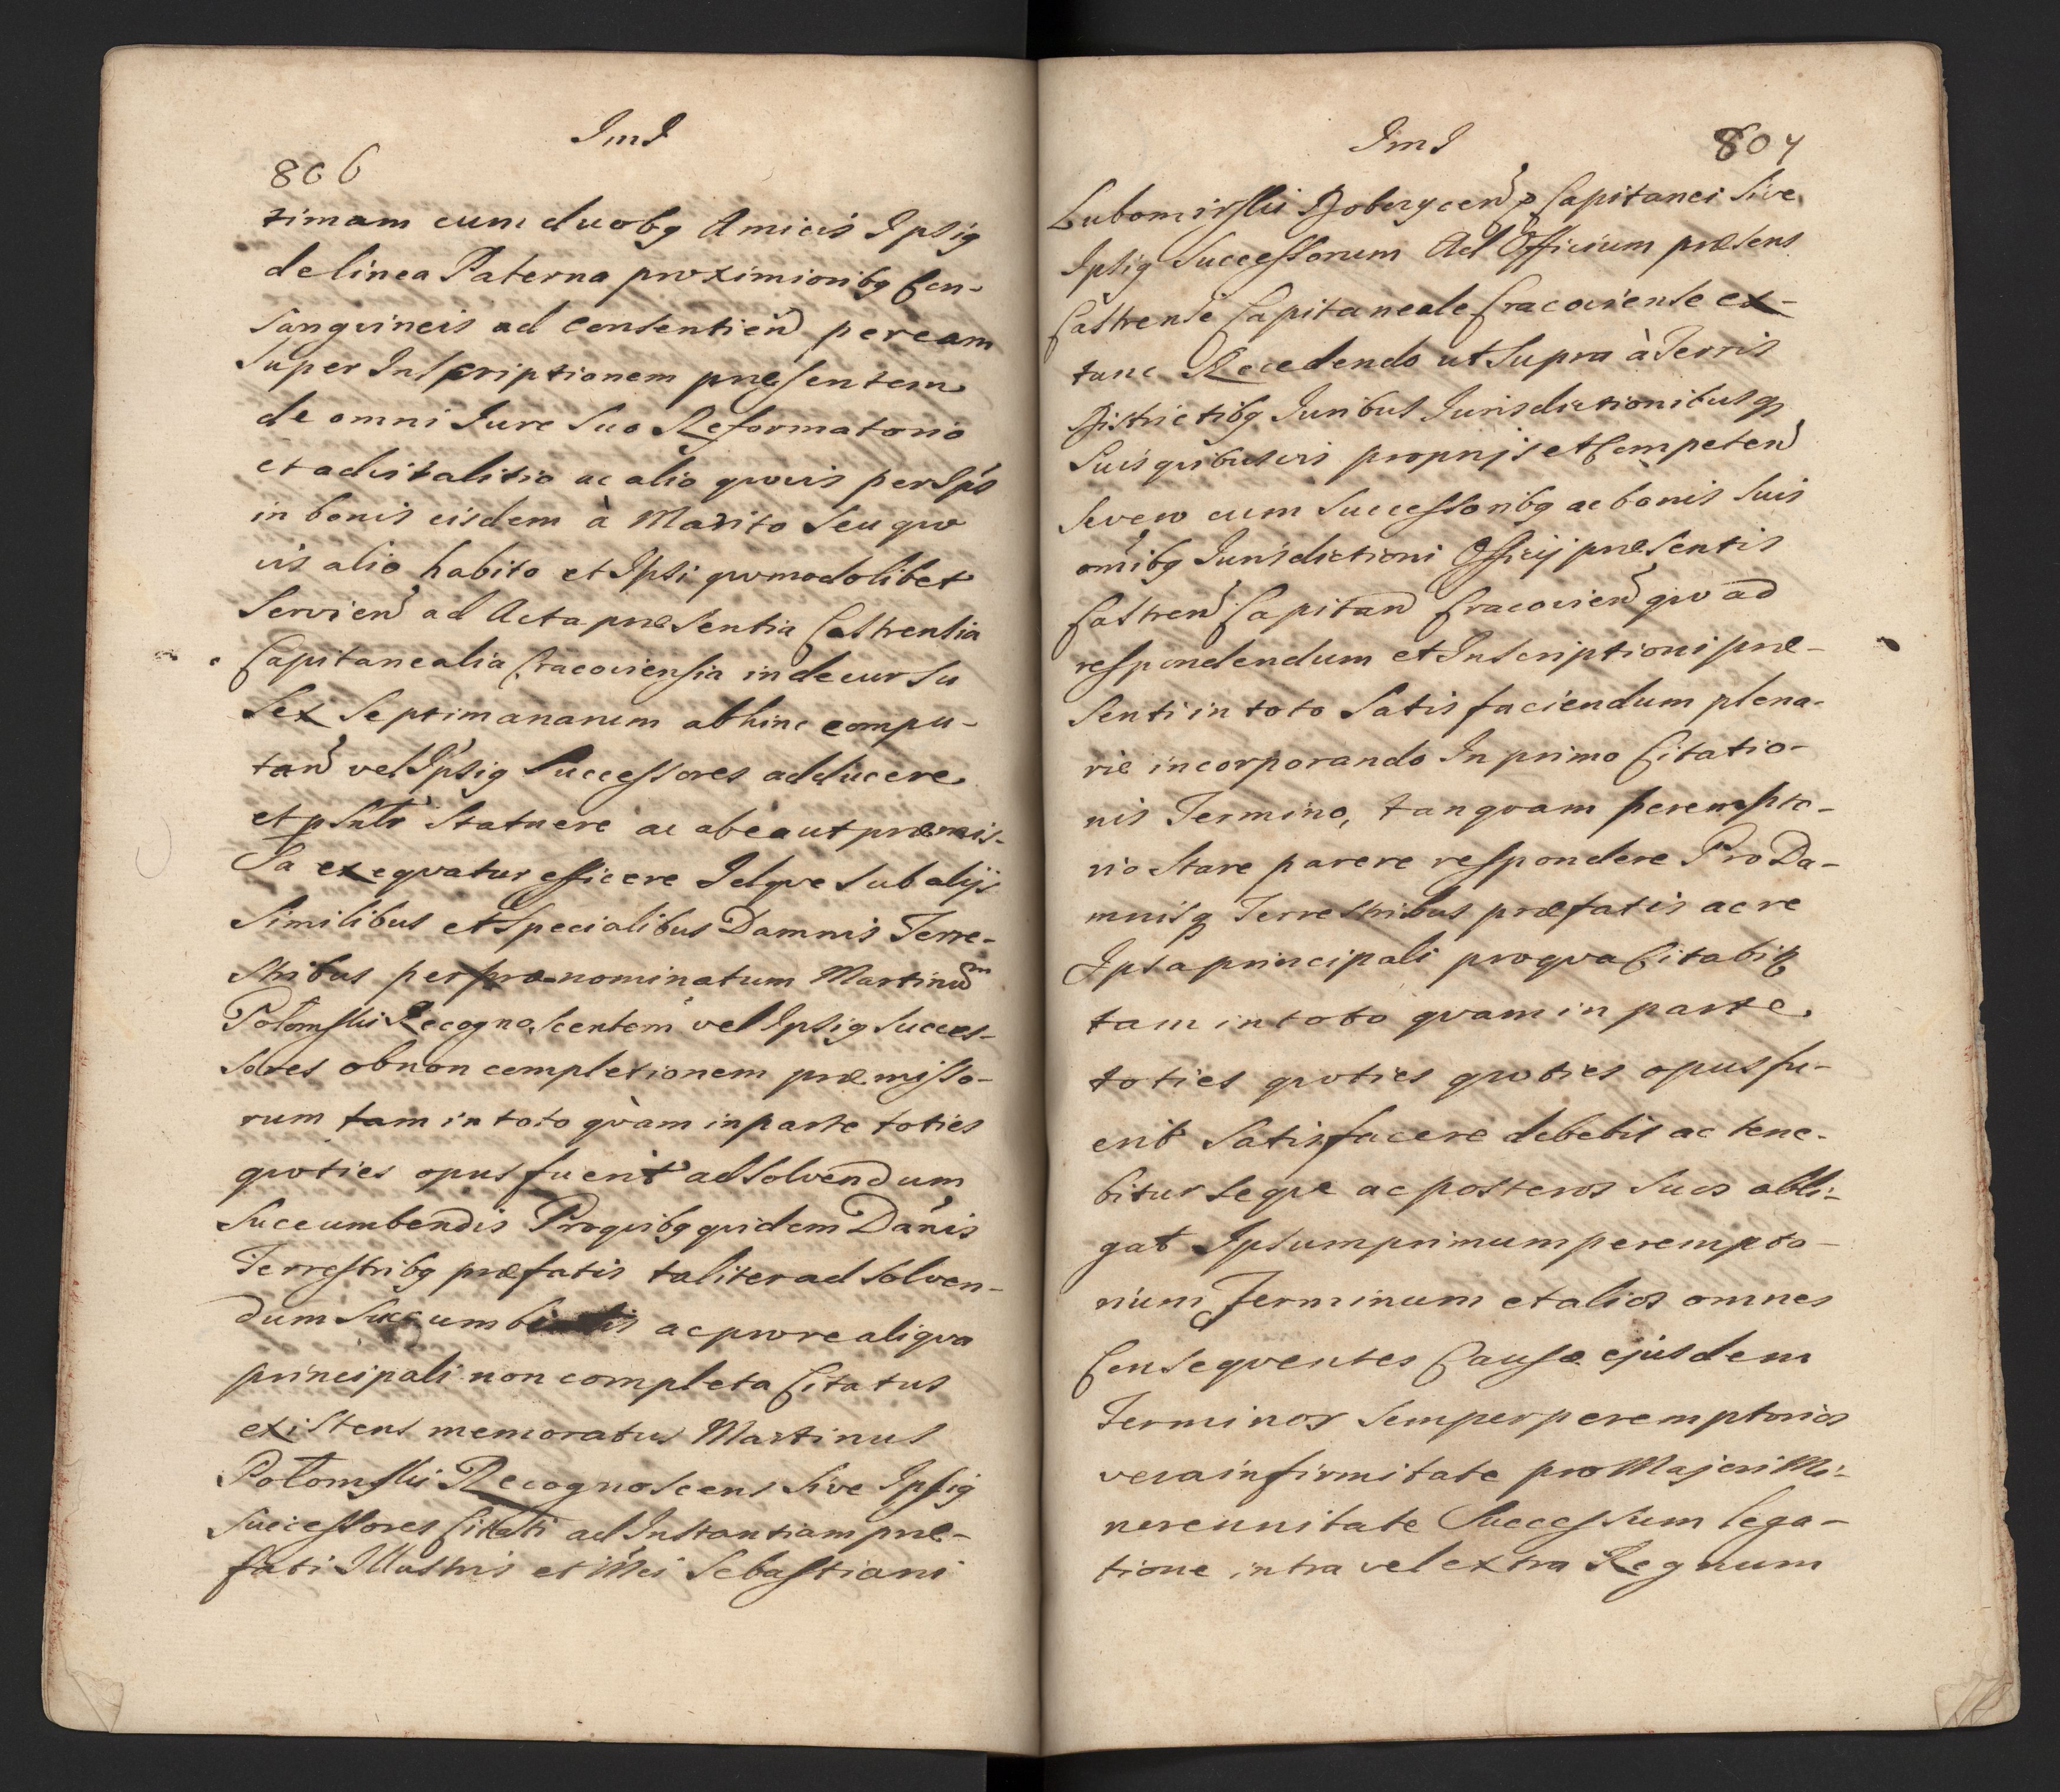 JmJ
806
timam cum duobq Amicis Ipsiq
de linea Paterna proximioribq Con-
sangvineis ad consentien per eam
super Inscriptionem præsentem
de omni Jure suo Reformatorio
et advitalitio ac alio qvovis per Ips
in bonis eisdem à Marito seu qvo
vis alio habito et Ipsi qvomodolibet
servien ad Acta præsentia Castrensia
Capitanealia Cracoviensia in decursu
sex septimanarum abhinc compu-
tan vel Ipsiq Successores adducere
et statuere ac ab ea ut præmis-
sa exeqvatur efficere Idqve sub alijs
similibus et specialibus Damnis Terre-
stribus per prænominatum Martinum
Potomski Recognoscentem vel Ipsiq Succes-
sores ob non completionem præmisso-
rum tam in toto qvàm in parte toties
qvoties opus fuerit ad solvendum
succumbendis Pro qvibq qvidem Danis
Terrestribq præfatis taliter ad solven-
dum ac pro re aliqva
principali non completa Citatus
existens memoratus Martinus
Potomski Recognoscens sive Ipsiq
Successores Citati ad Instantiam præ-
fati Illustris et Mci Sebastiani
JmJ
807
Lubomirski Capitanei sive
Ipsiq Successorum Ad Officium præsens
Castrense Capitaneale Cracoviense ex-
tunc Recedendo ut supra à Terris
Districtibq Juribus Jurisdictionibusq
suis qvibusvis proprijs et Competen
se vero cum Successoribq ac bonis suis
omibq Jurisdictioni Officij præsentis
Castren Capitan Cracovien qvo ad
respondendum et Inscriptioni præ-
senti in toto satis faciendum plena-
rie incorporando In primo Citatio-
nis Termino, tanqvam perempto-
rio stare parere respondere Pro Da-
mnisq Terrestribus præfatis ac re
Ipsa principali pro qva Citabit
tam in toto qvam in parte
toties qvoties qvoties opus fu-
erit satisfacere debebit ac tene-
bitur seqve ac posteros suos obli-
gat Ipsum primum perempto-
rium Terminum et alios omnes
Conseqventes Causæ ejusdem
Terminos semper peremptorios
vera infirmitate pro Majori Mi-
nore unitate Successum lega-
tione intra vel extra Regnum